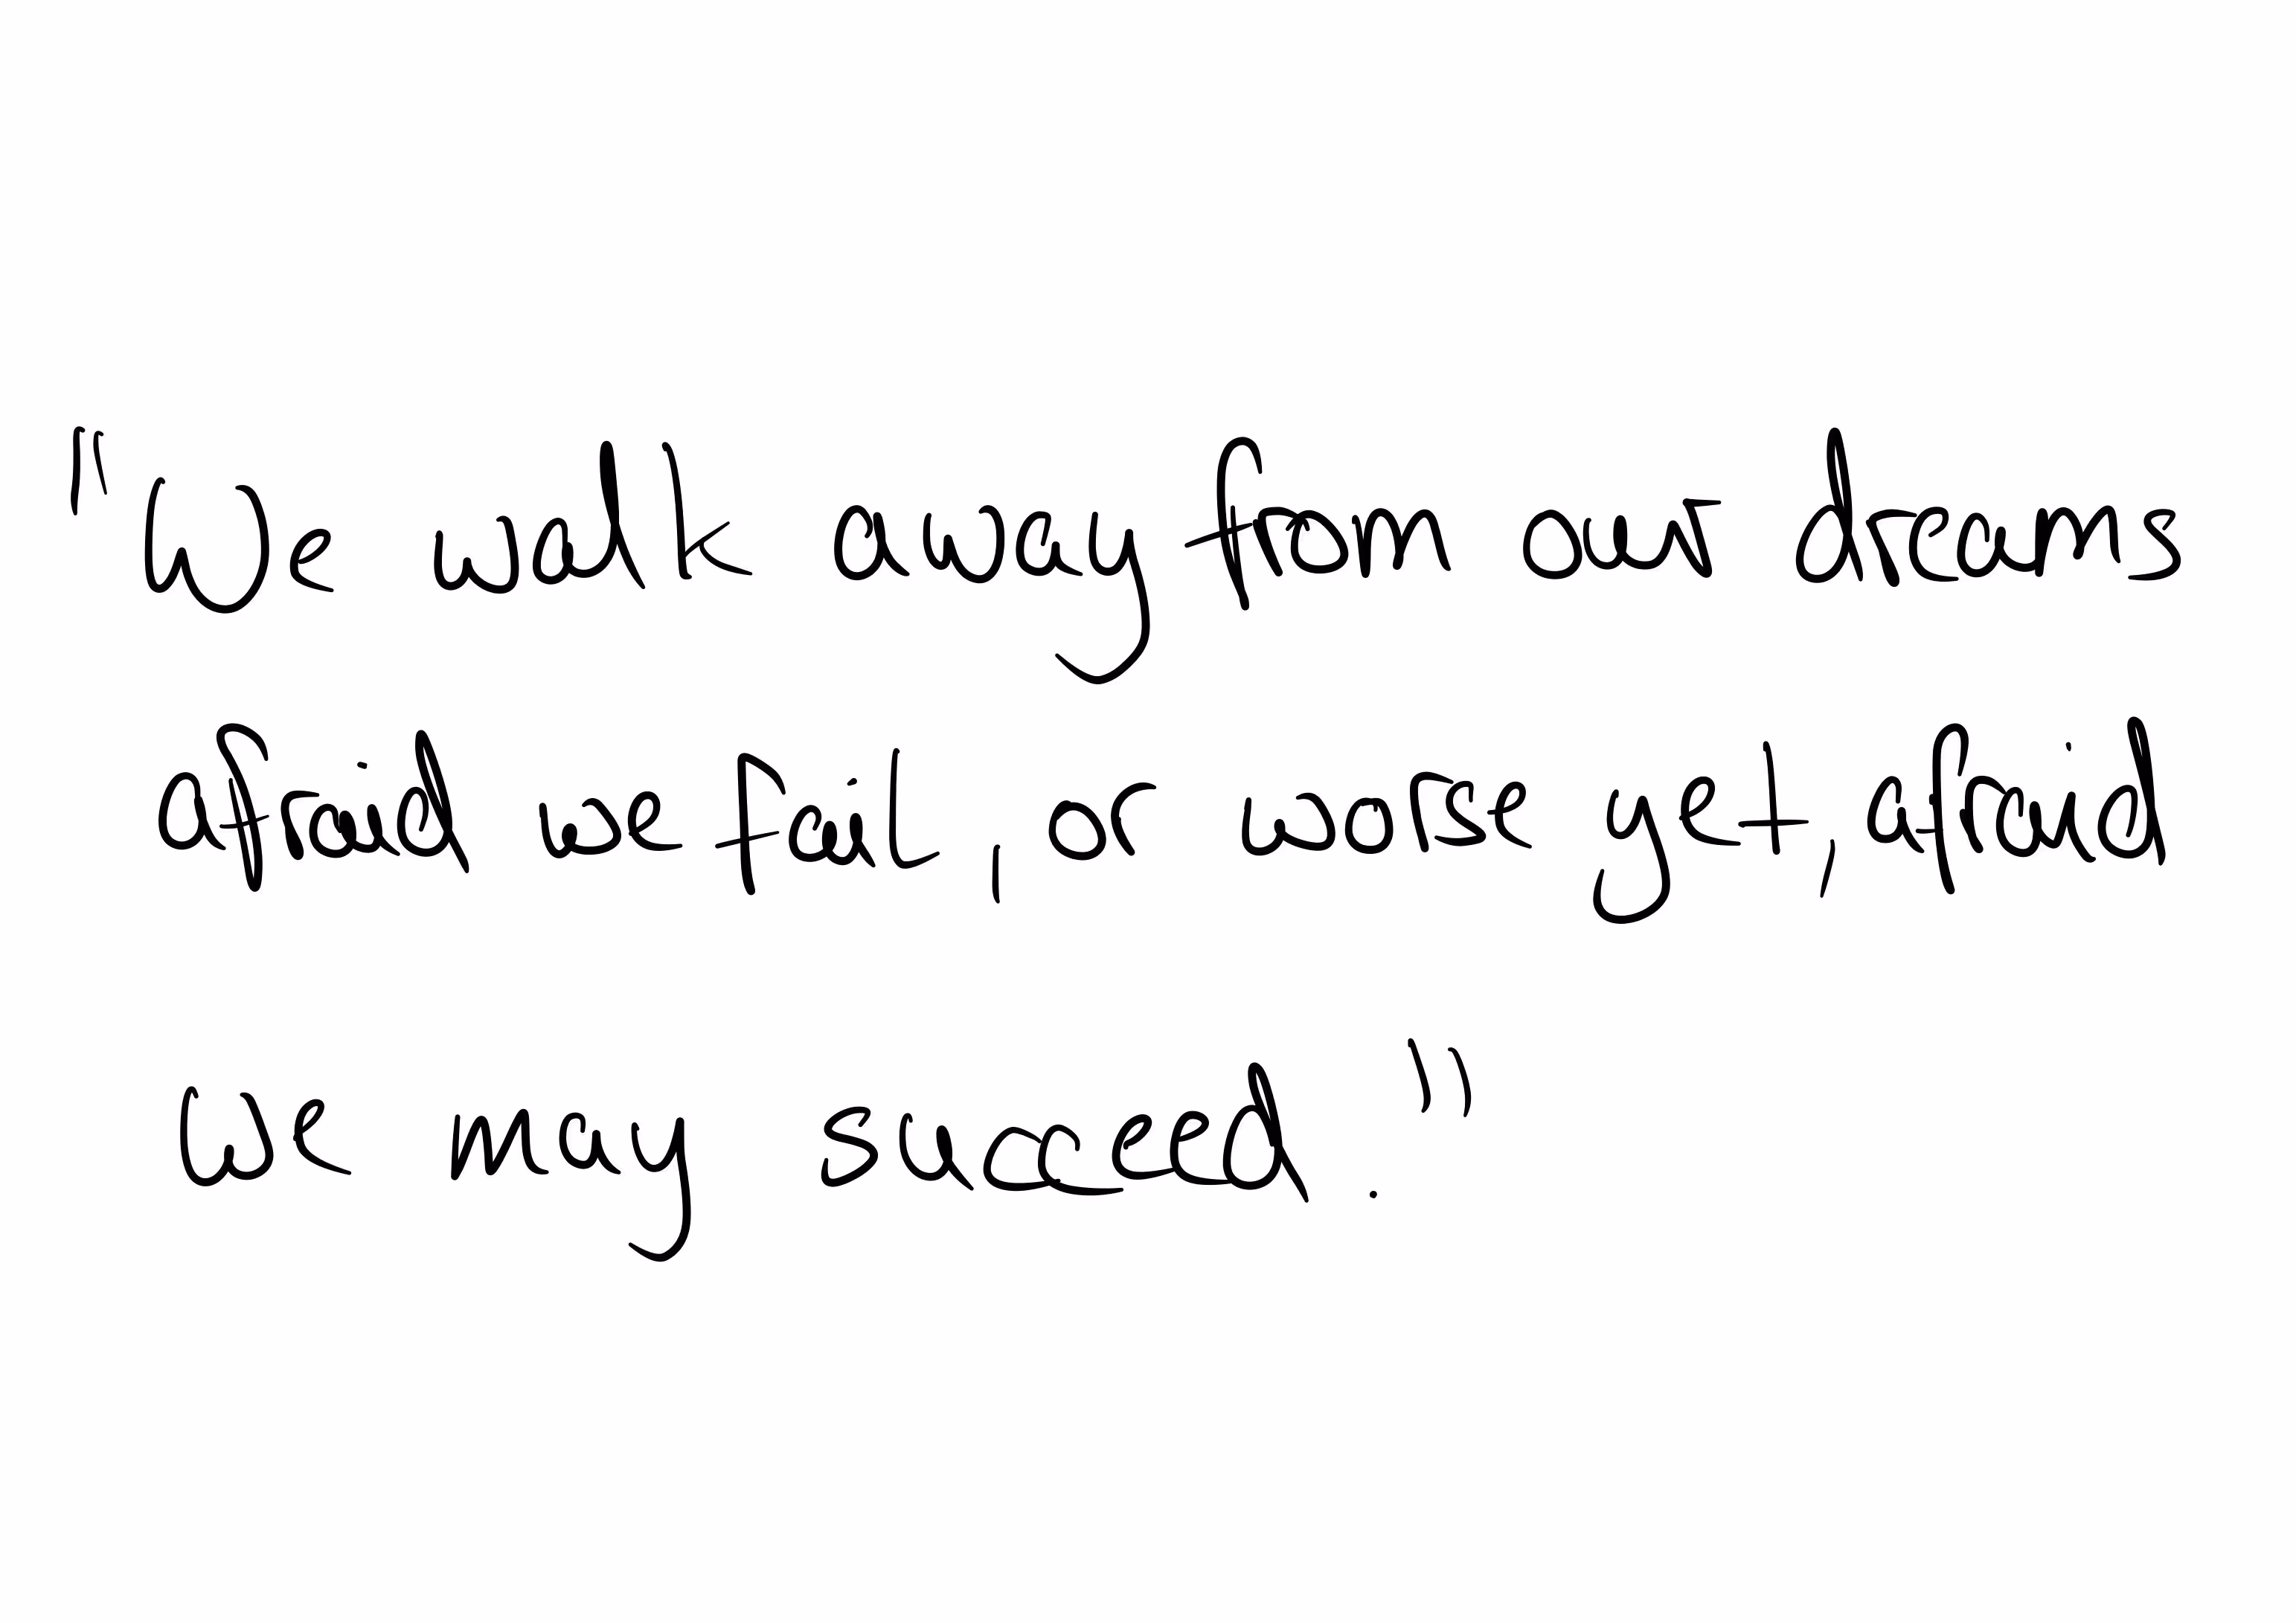 "We walk away from our dreams
afraid we fail, or worse yet, afraid
we may succeed."